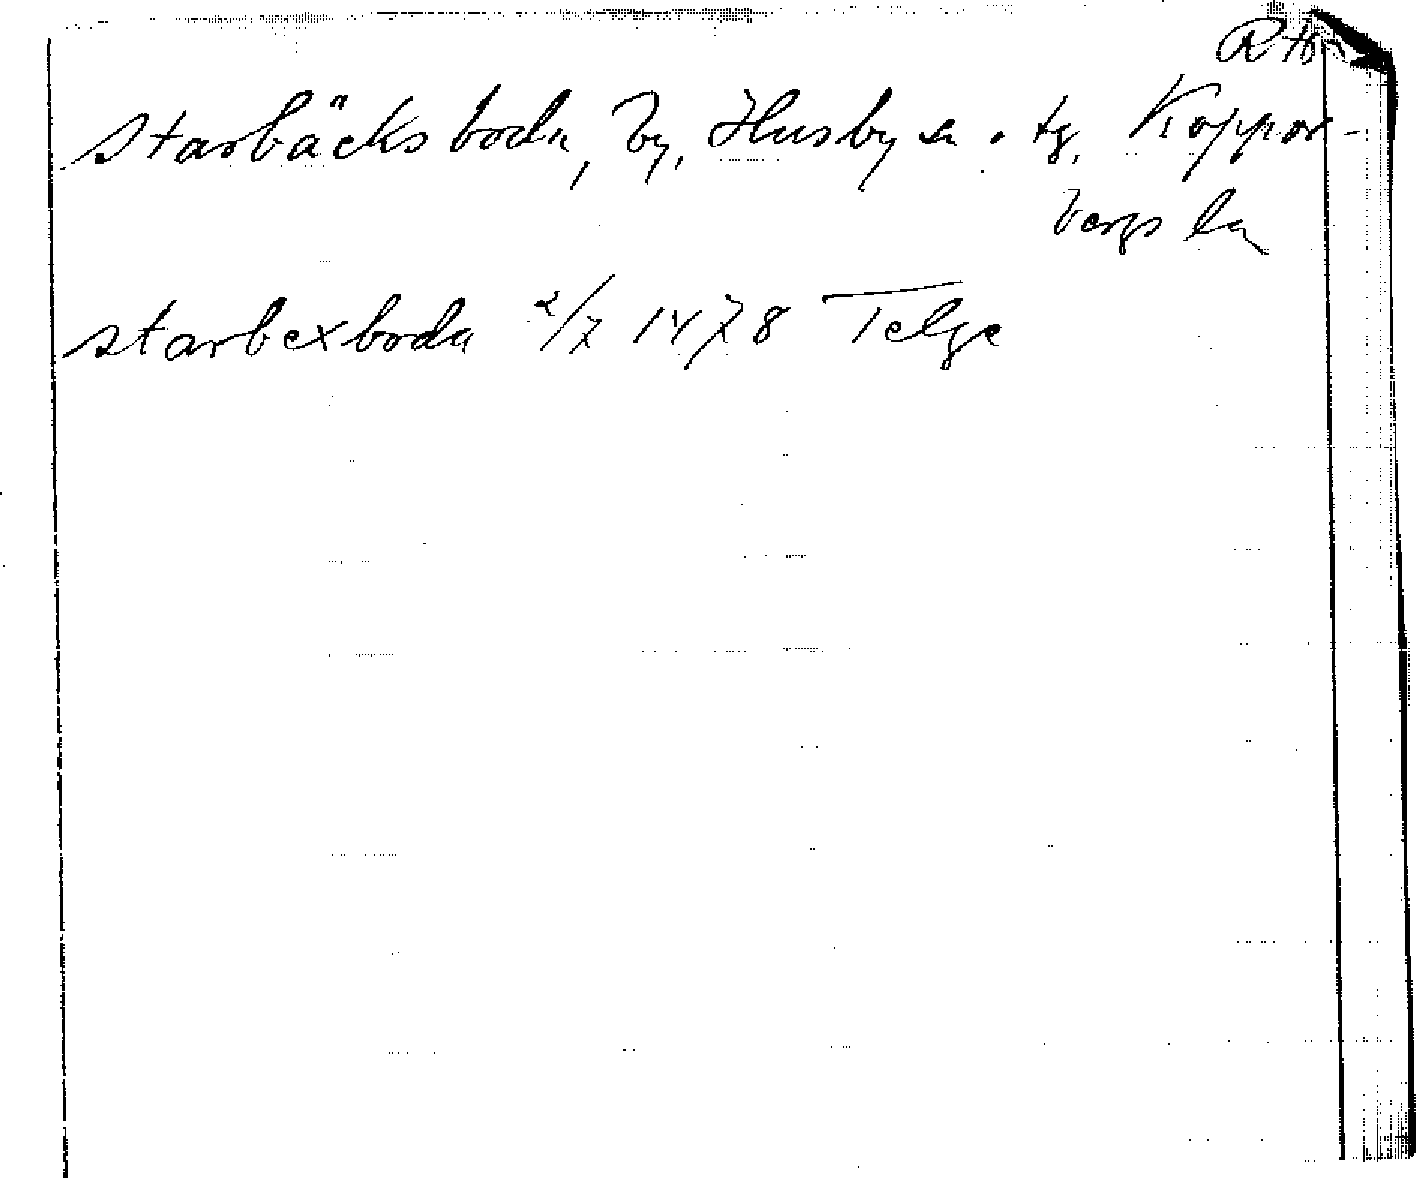 Starbäcksboda, by, Husby sn o. tg, Koppar-
bergs län
starbexboda 2/7 1478 Telge